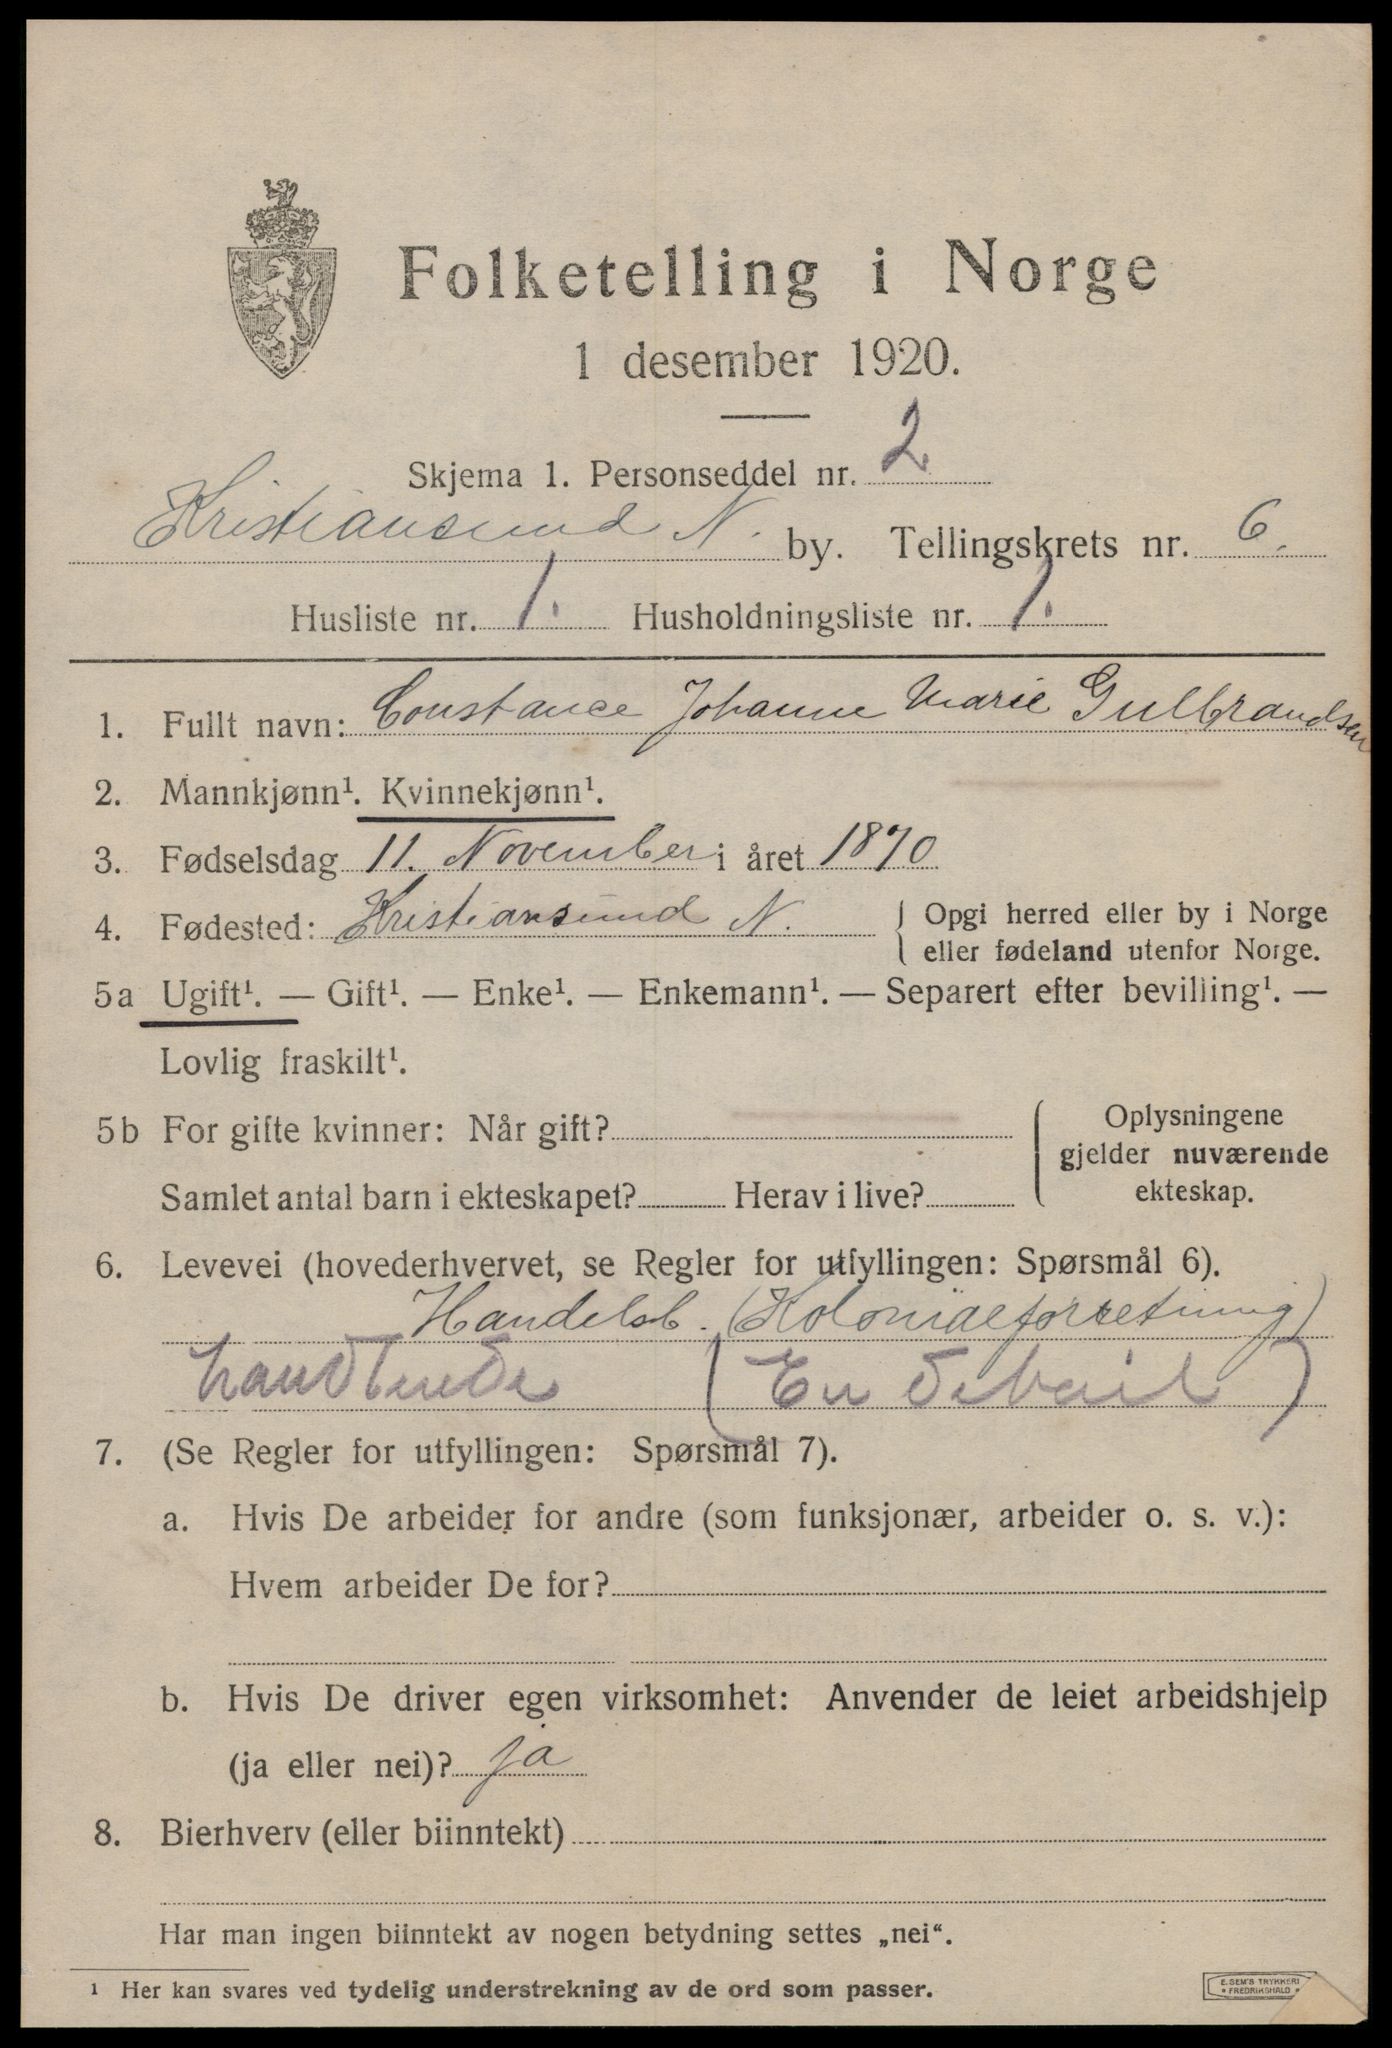 Folketelling i Norge
1 desember 1920.
Skjema 1. Personseddel nr. 2
Kristiansund N. by. Tellingskrets nr. 6.
Husliste nr. 1. Husholdningsliste nr. 1.
1. Fullt navn: Constance Johanne Marie Gulbrandsen
2. Mannkjønn¹. Kvinnekjønn¹.
3. Fødselsdag 11. November i året 1870
4. Fødested: Kristiansund N. { Opgi herred eller by i Norge
eller fødeland utenfor Norge.
5a Ugift¹. — Gift¹. — Enke¹. — Enkemann¹. — Separert efter bevilling¹. —
Lovlig fraskilt¹.
5b For gifte kvinner: Når gift? { Oplysningene
gjelder nuværende
Samlet antal barn i ekteskapet? Herav i live? ekteskap.
6. Levevei (hovederhvervet, se Regler for utfyllingen: Spørsmål 6).
Handelsb. (Kolonialforretning)
handlende (En detail)
7. (Se Regler for utfyllingen: Spørsmål 7).
a. Hvis De arbeider for andre (som funksjonær, arbeider o. s. v.):
Hvem arbeider De for?
b. Hvis De driver egen virksomhet: Anvender de leiet arbeidshjelp
(ja eller nei)? ja
8. Bierhverv (eller biinntekt)
Har man ingen biinntekt av nogen betydning settes „nei“.
¹ Her kan svares ved tydelig understrekning av de ord som passer.
E. SEM'S TRYKKERI
* FREDRIKSHALD *